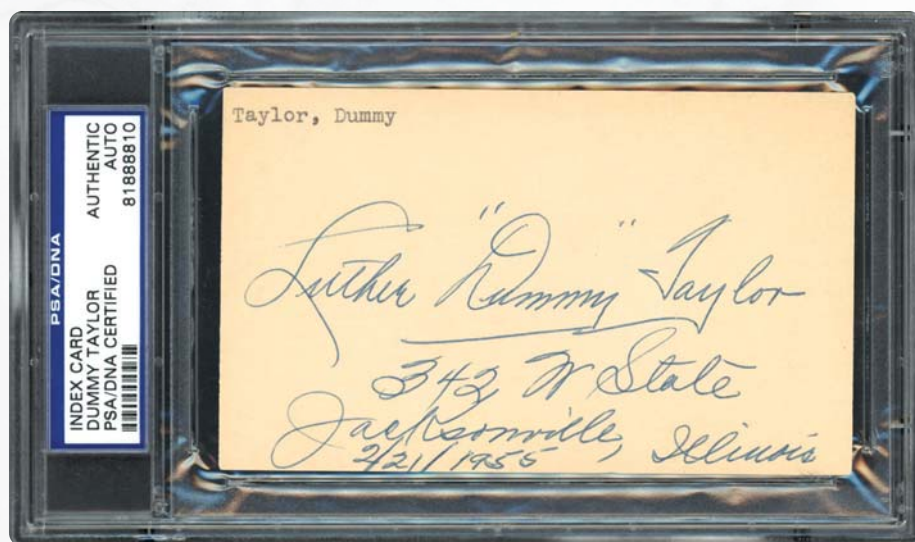 PSA/DNA
INDEX CARD
DUMMY TAYLOR
PSA/DNA CERTIFIED
AUTHENTIC
AUTO
81888810
Taylor, Dummy
Luther "Dummy" Taylor
342 W State
Jacksonville, Illinois
2/21/1955